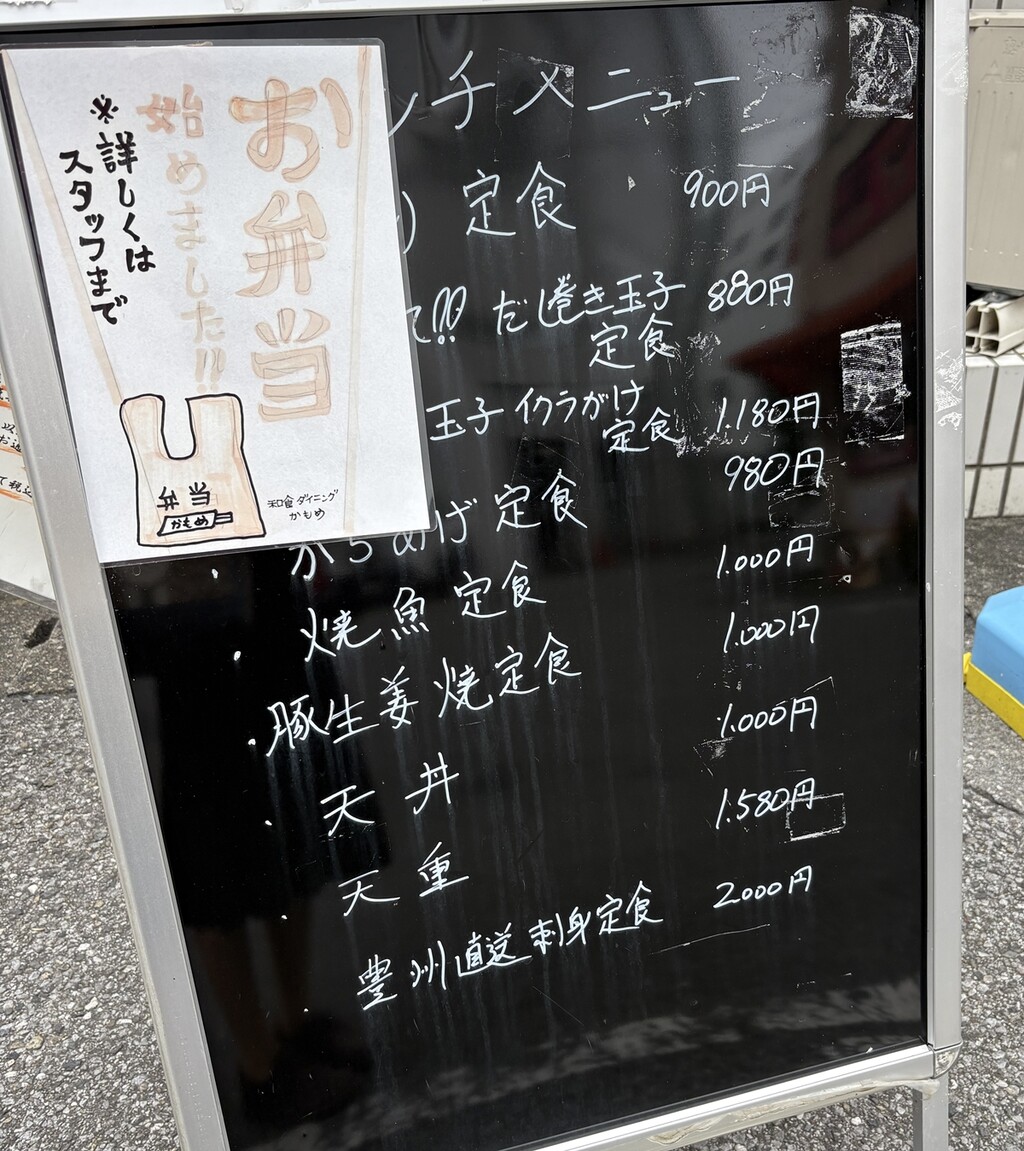 お弁当
始めました!!
※詳しくは
スタッフまで
弁当
かもめ
和食ダイニング
かもめ
ンチメニュー
) 定食 900円
て!! だし巻き玉子 880円
定食
玉子イクラがけ
定食 1.180円
からあげ定食 980円
・焼魚定食 1.000円
・豚生姜焼定食 1.000円
・天丼 1.000円
・天重 1.580円
豊州直送刺身定食 2.000円